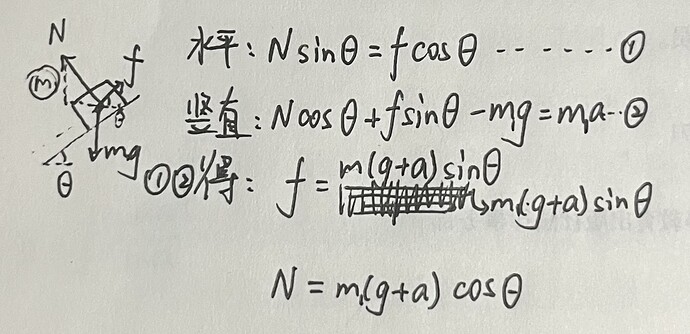 N
f
m
θ
mg
θ
水平: Nsinθ = fcosθ ------- ①
竖直: Ncosθ + fsinθ - mg = ma -- ②
①②得: f = m(g+a)sinθ
m(g+a)sinθ
N = m(g+a) cosθ